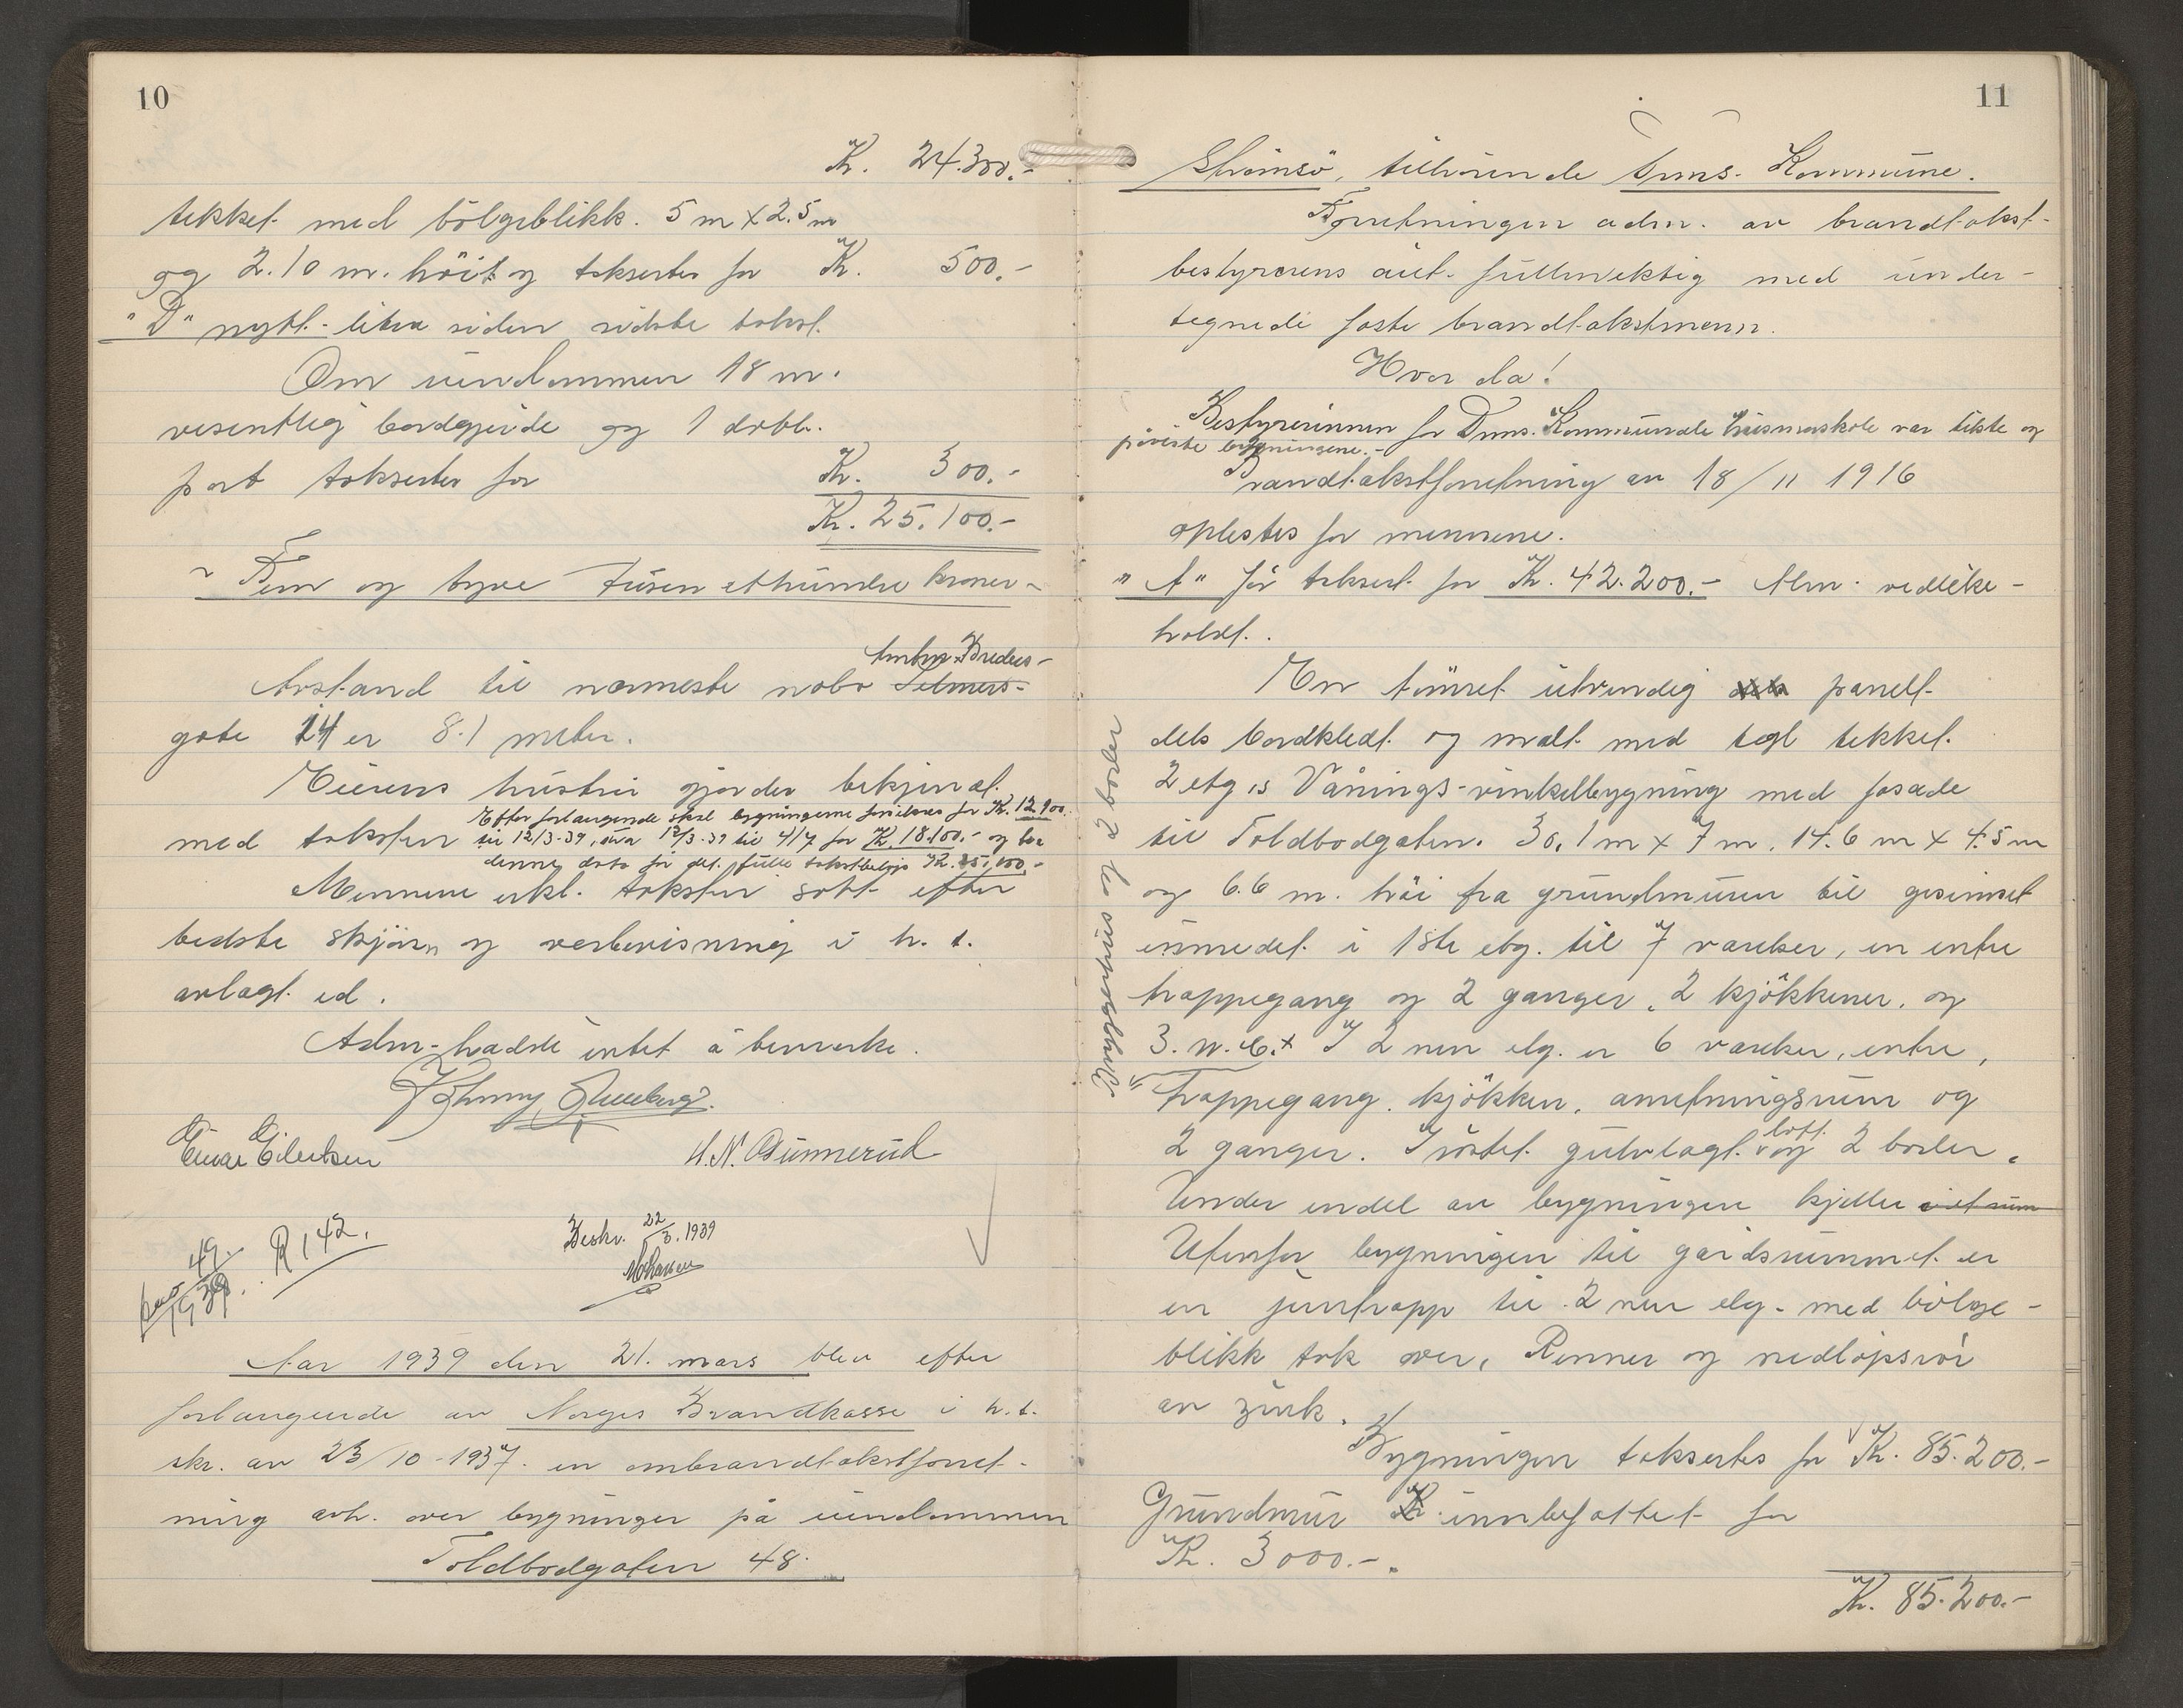 10
Kr. 24.300.-
tekket med bölgeblikk. 5 m x 2.5 m
og 2.10 m. höit og takseres for Kr. 500.-
"D" nytt litra siden sidste takst.
Om eiendommen 18 m.
vesentlig bordgjerde og 1 dobb.
port takseres for Kr. 300.-
Kr. 25.100.-
~ Fem og tyve tusen ethundre kroner ~
Anton Bredes-
Avstand til nærmeste nabo
gate 14 er 8.1 meter.
Eierens hustru gjordes bekjent
Efter forlangende skal bygningerne for Kr. 12.900.
med taksten til 12/3-39, fra 12/3-39 til 4/7 for Kr. 18.100.- og fra
denne dato for det fulle takstbelöp Kr. 25,100.-
Mennene erkl. taksten satt efter
bedste skjön og overbevisning i h. t.
avlagt ed.
Adm. hadde intet å bemerke.
Einar Eilertsen H. N. Gunnerud
49 R 142.
1939.
Beskr. 22/3. 1939
Aar 1939 den 21. mars blev efter
forlangende av Norges Brandkasse i h.t.
skr. av 23/10-1937. en ombrandtakstforret-
ning avh. over bygninger på eiendommen
Toldbodgaten 48.
11
Strömsö, tilhörende Drms. Kommune.
Forretningen adm. av brandtakst-
bestyrerens aut. fullmektig med under-
tegnede faste brandtakstmenn.
Hvor da!
Bestyrerinnen for Drms. Kommunale husmorskole var tilste og
påviste bygningene.-
Brandtakstforretning av 18/11 1916
oplestes for mennene.
"A" för taksert for Kr. 42.200.- Alm. vedlike-
holdt.
En tömret utvendig panelt
dels bordkledt og malt med tegl tekket
2 etg.s Vånings-vinkelbygning med fasade
til Toldbodgaten. 30,1 m x 7 m. 14.6 m x 4.5 m
og 6.6 m. höi fra grundmuren til gesimset
innredet i 1ste etg. til 7 værelser, en entre
trappegang og 2 ganger, 2 kjökkener, og
3. w.c.x I 2nen etg. er 6 værelser, entre,
trappegang. kjökken, anretningsrum og
2 ganger. I röstet gulvlagt loft og 2 boder.
Under endel av bygningen kjeller i et rum
Utenfor bygningen til gårdsrummet er
en jerntrapp til 2nen etg. med bölge-
blikk tak over, Renner og nedlöpsrör
av zink.
Bygningen takseres for Kr. 85.200.-
Grundmur innbefattet for
Kr. 3000.-.
Kr. 85.200.-